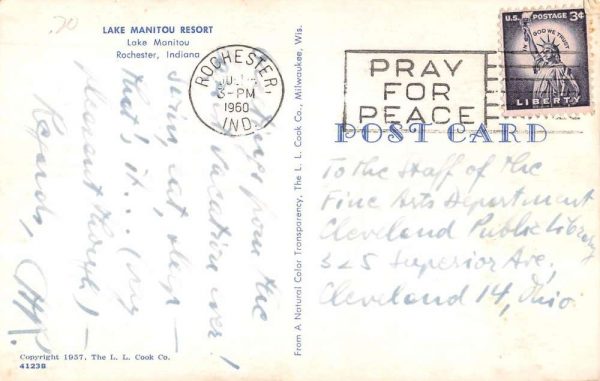 20
LAKE MANITOU RESORT
Lake Manitou
Rochester, Indiana
from the
vacation ever!
Swim, eat, sleep —
that's it... (very
pleasant though) —
Regards,
Copyright 1957, The L. L. Cook Co.
41238
From A Natural Color Transparency, The L. L. Cook Co., Milwaukee, Wis.
ROCHESTER,
3-PM
1960
IND.
PRAY
FOR
PEACE
U.S. POSTAGE 3¢
IN GOD WE TRUST
LIBERTY
POST CARD
To the Staff of the
Fine Arts Department
Cleveland Public Library
325 Superior Ave,
Cleveland 14, Ohio